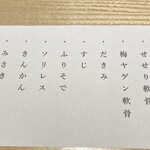 ・せせり軟骨
・梅ヤゲン軟骨
・だきみ
・すじ
・ふりそで
・ソリレス
・きんかん
・みさき